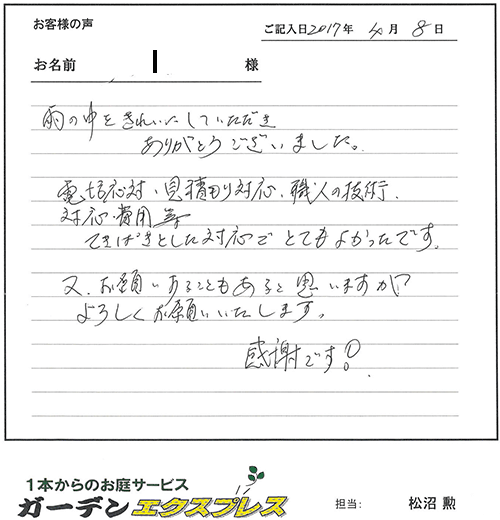 お客様の声
ご記入日2017年 4月 8日
お名前 I 様
雨の中をきれいにしていただき
ありがとうございました。
電話応対、見積もり対応、職人の技術、
対応、費用等
てきぱきとした対応でとてもよかったです。
又、お願いすることもあると思いますが、
よろしくお願いいたします。
感謝です!
1本からのお庭サービス
ガーデンエクスプレス
担当: 松沼 勲